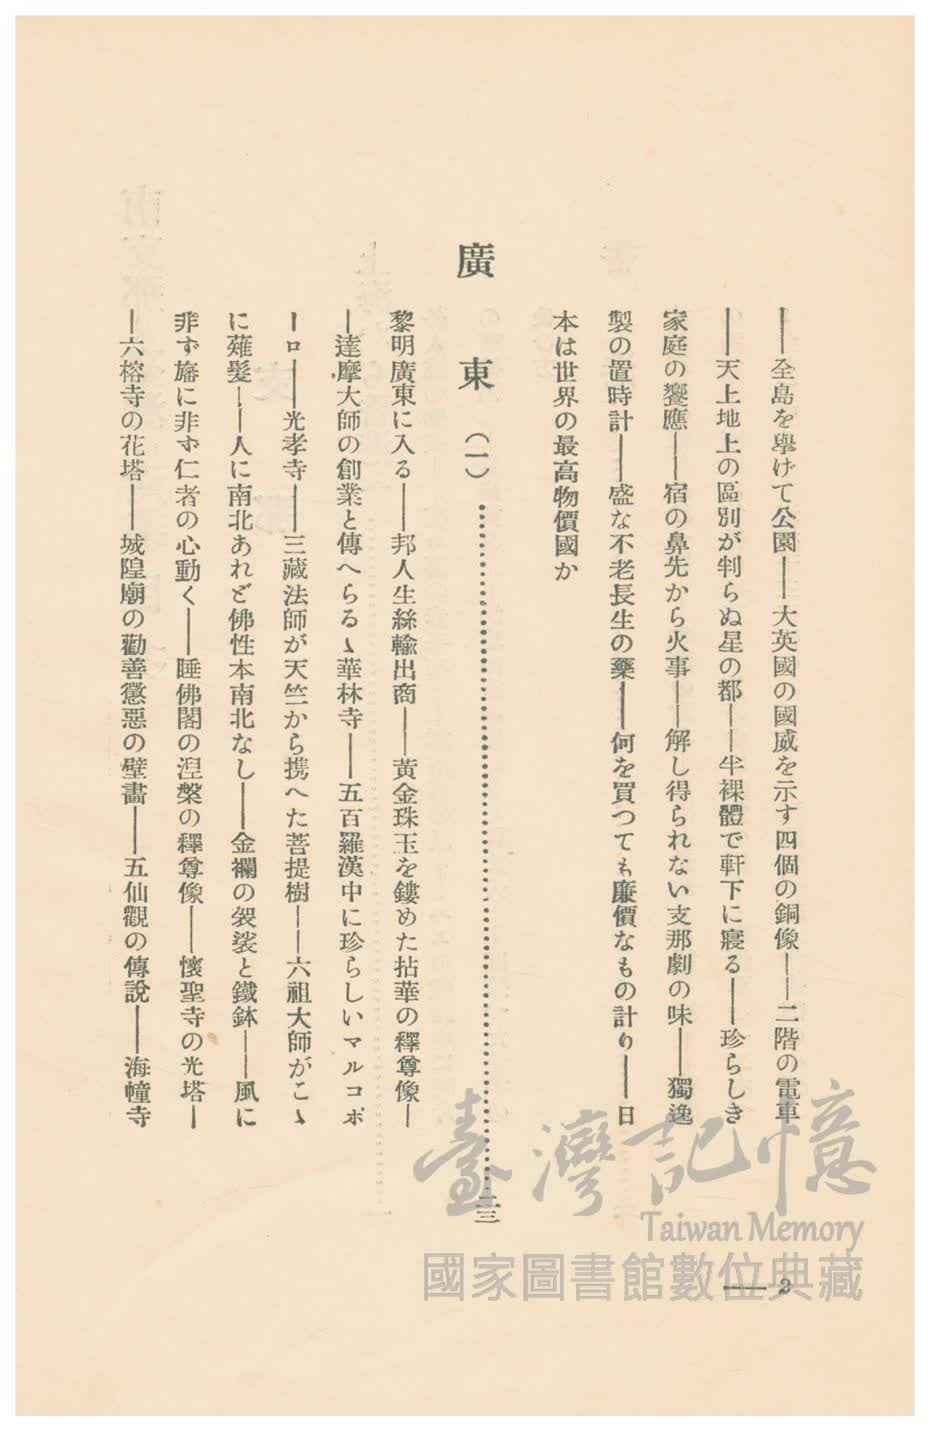 ――全島を擧げて公園――大英國の國威を示す四個の銅像――二階の電車
――天上地上の區別が判らぬ星の都――半裸體で軒下に寢る――珍らしき
家庭の饗應――宿の鼻先から火事――解し得られない支那劇の味――獨逸
製の置時計――盛な不老長生の藥――何を買つても廉價なもの計り――日
本は世界の最高物價國か
廣東（一）…………二三
黎明廣東に入る――邦人生絲輸出商――黃金珠玉を鏤めた拈華の釋尊像―
―達摩大師の創業と傳へらるゝ華林寺――五百羅漢中に珍らしいマルコポ
ーロ――光孝寺――三藏法師が天竺から携へた菩提樹――六祖大師がこゝ
に薙髮――人に南北あれど佛性本南北なし――金襴の袈裟と鐵鉢――風に
非ず旛に非ず仁者の心動く――睡佛閣の涅槃の釋尊像――懷聖寺の光塔―
―六榕寺の花塔――城隍廟の勸善懲惡の壁畵――五仙觀の傳說――海幢寺
― 2
臺灣記憶
Taiwan Memory
國家圖書館數位典藏